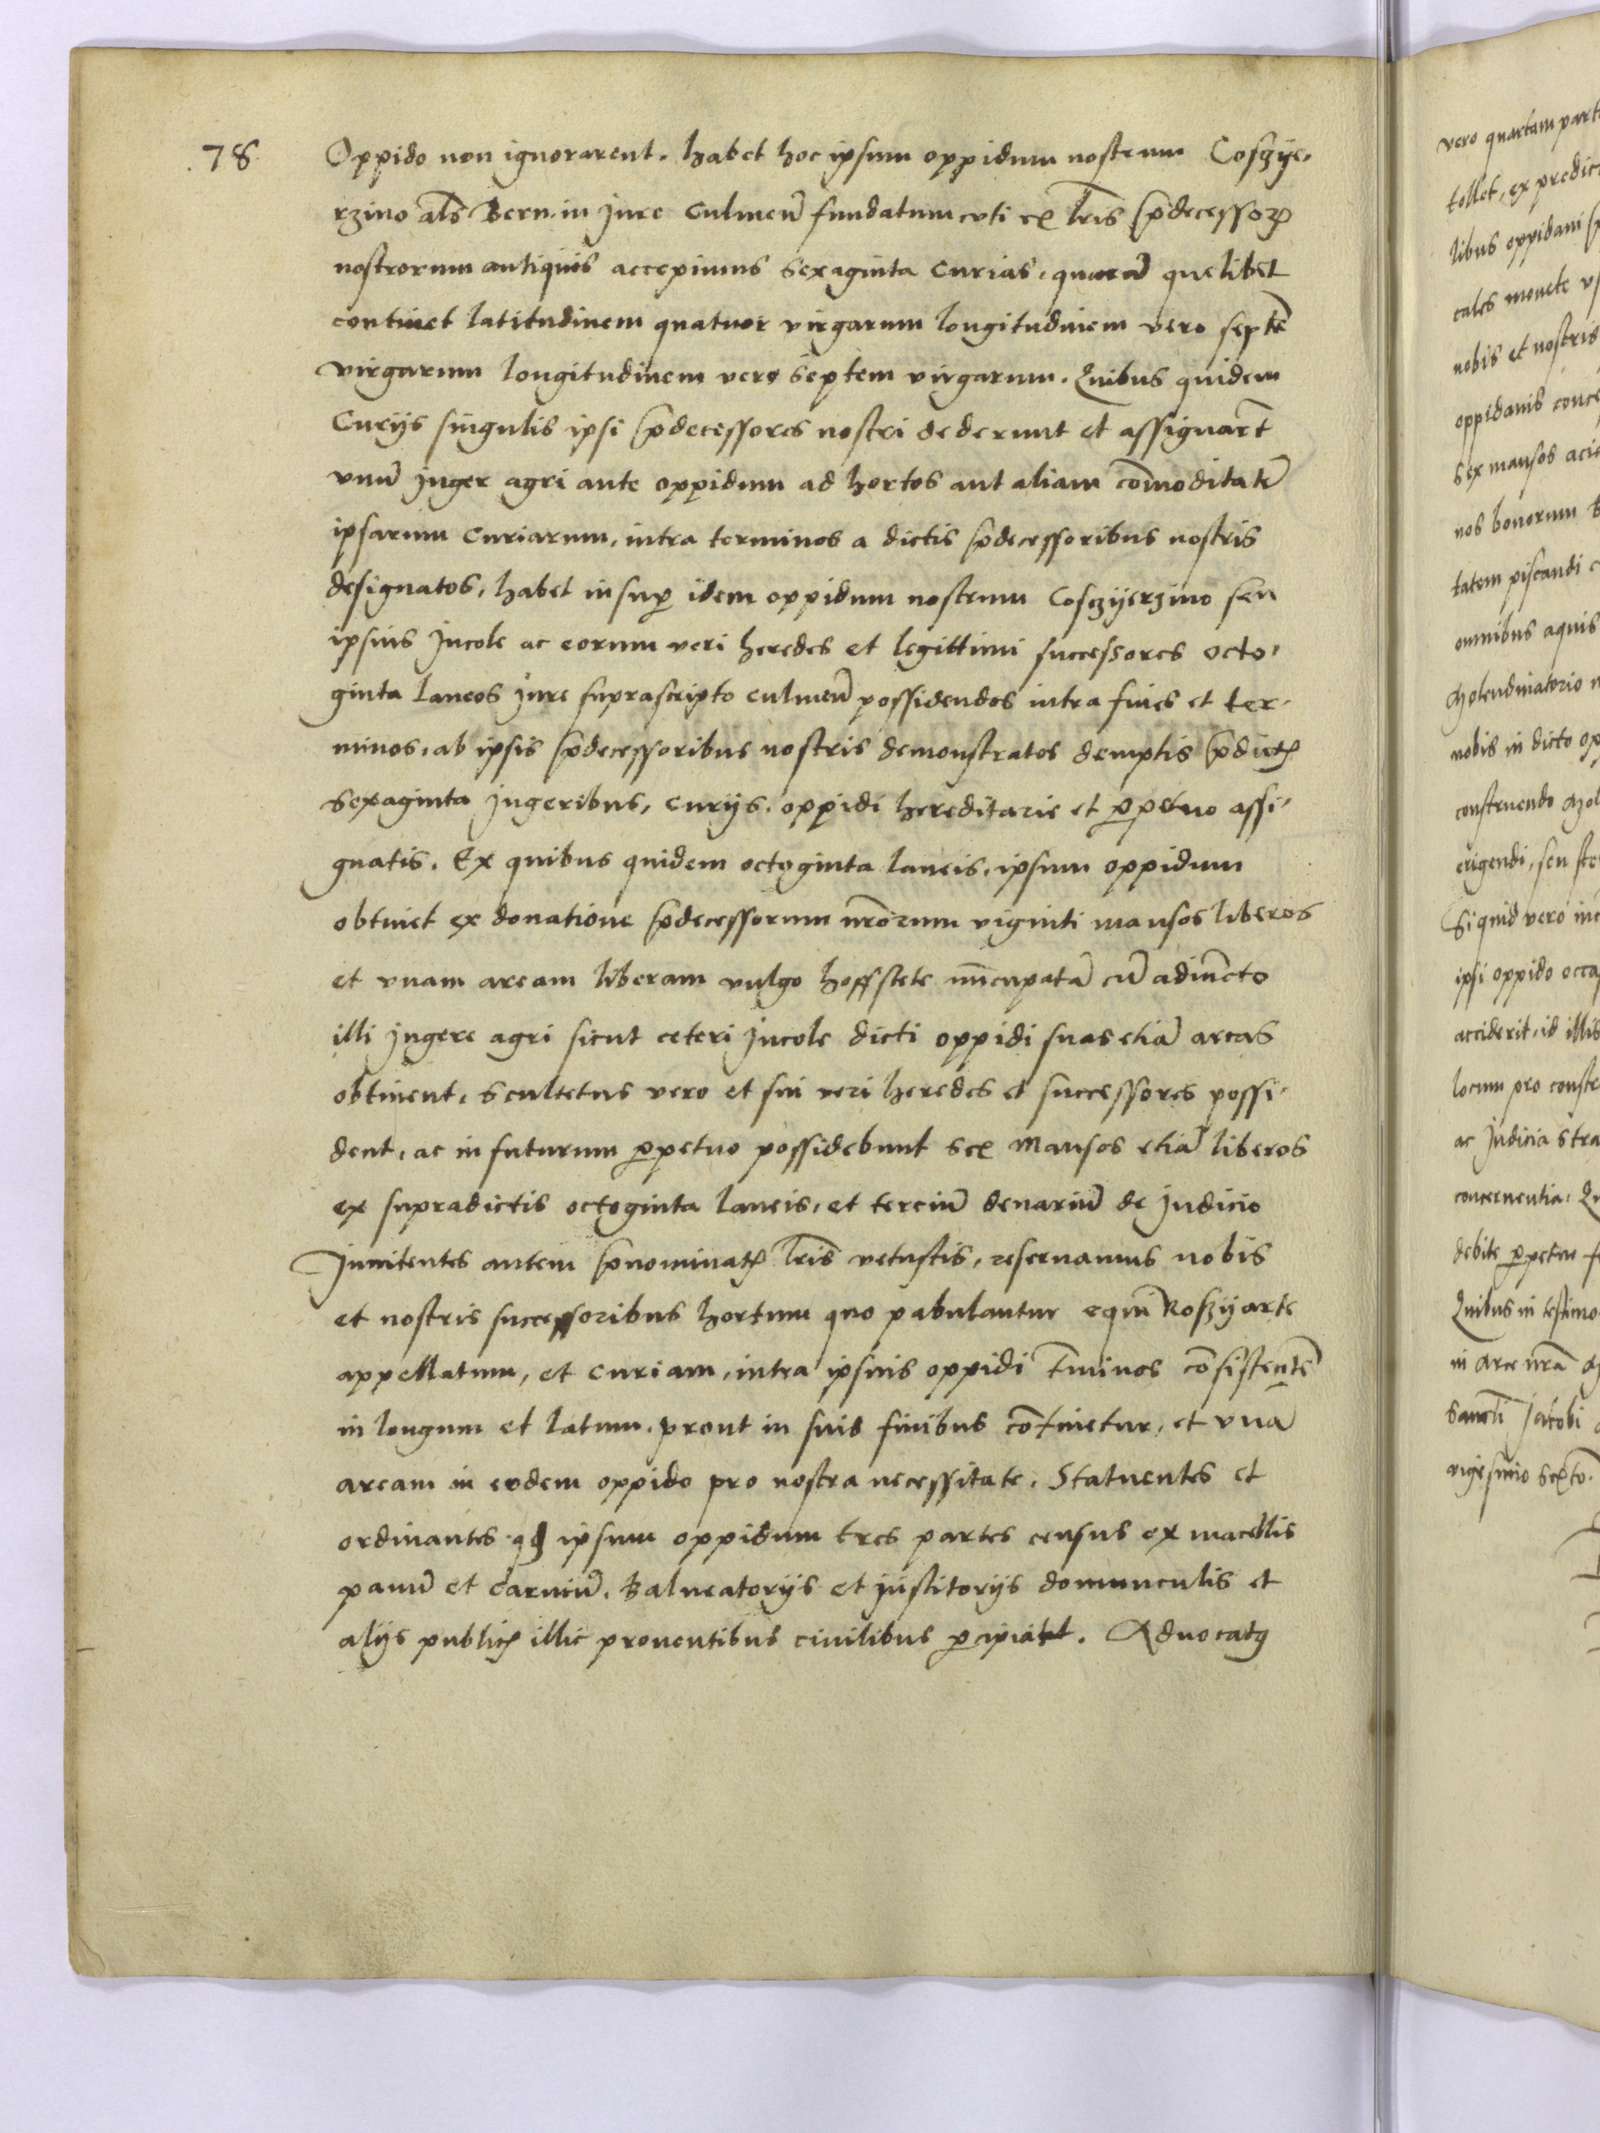 78
Oppido non ignorarent. habet hoc ipsum oppidum nostrum Cosczye,
rzino als̄ Bern. in Jure Culmeñ fundatum uti ex lr̄is p̄decessoꝝ
nostrorum antiquis accepimus sexaginta curias, quarū quelibet
continet latitudinem quatuor virgarum longitudinem vero septē
virgarum longitudinem vero septem virgarum. Quibus quidem
Curijs singulis ipsi p̄decessores nostri dederunt et assignar̄t
vnū Juger agri ante oppidum ad hortos aut aliam com̄oditatē
ipsarum curiarum, intra terminos a dictis p̄decessoribus nostris
designatos, habet insuꝑ idem oppidum nostrum Cosczyerzino seu
ipsius Jncole ac eorum veri heredes et legittimi successores octo,
ginta laneos Jure suprascripto culmeñ possidendos intra fines et ter,
minos, ab ipsis p̄decessoribus nostris demonstratos demptis p̄dictꝭ
sexaginta Jugeribus, curijs, oppidi hereditarie et ꝑpetuo assi,
gnatis. Ex quibus quidem octoginta laneis, ipsum oppidum
obtinet ex donatione p̄decessorum nr̄orum viginti mansos liberos
et vnam aream liberam vulgo hoffstete nūcupatā cū adiūcto
illi Jugere agri sicut ceteri Jncole dicti oppidi suas etiā areas
obtinent, scultetus vero et sui veri heredes et successores possi,
dent, ac in futurum ꝑpetuo possidebunt sex Mansos etiā liberos
ex supradictis octoginta laneis, et terciū denariū de Judicio
Jnnitentes autem p̄nominatꝭ lr̄is vetustis, reservamus nobis
et nostris successoribus hortum quo pabulantur equi Roszyarte
appellatum, et curiam, intra ipsius oppidi t̄minos cōsistentē
in longum et latum, prout in suis finibus cōtinetur, et vnā
aream in eodem oppido pro nostra necessitate. Statuentes et
ordinantes qꝫ ipsum oppidum tres partes census ex macellis
panū et carniū. Balneatorijs et Justitorijs domunculis et
alijs publicꝭ illic proventibus civilibus ꝑcipiat. Advocatꝰ
vero quartam part
tollet, ex predict
libus oppidani
cales monete
nobis et nostris
oppidanis conce
sex mansos
nos bonorum
tatem piscandi
omnibus aquis
Molendinatorio
nobis in dicto op
construendo Mol
erigendi, seu
Si quid vero
ipsi oppido occa
acciderit, id illis
locum pro constr
ac Judicia
concernentia,
debite ꝑpetuo
Quibus in testimo
in Arce nr̄a
Sancti Jacobi
vigesimo sexto.